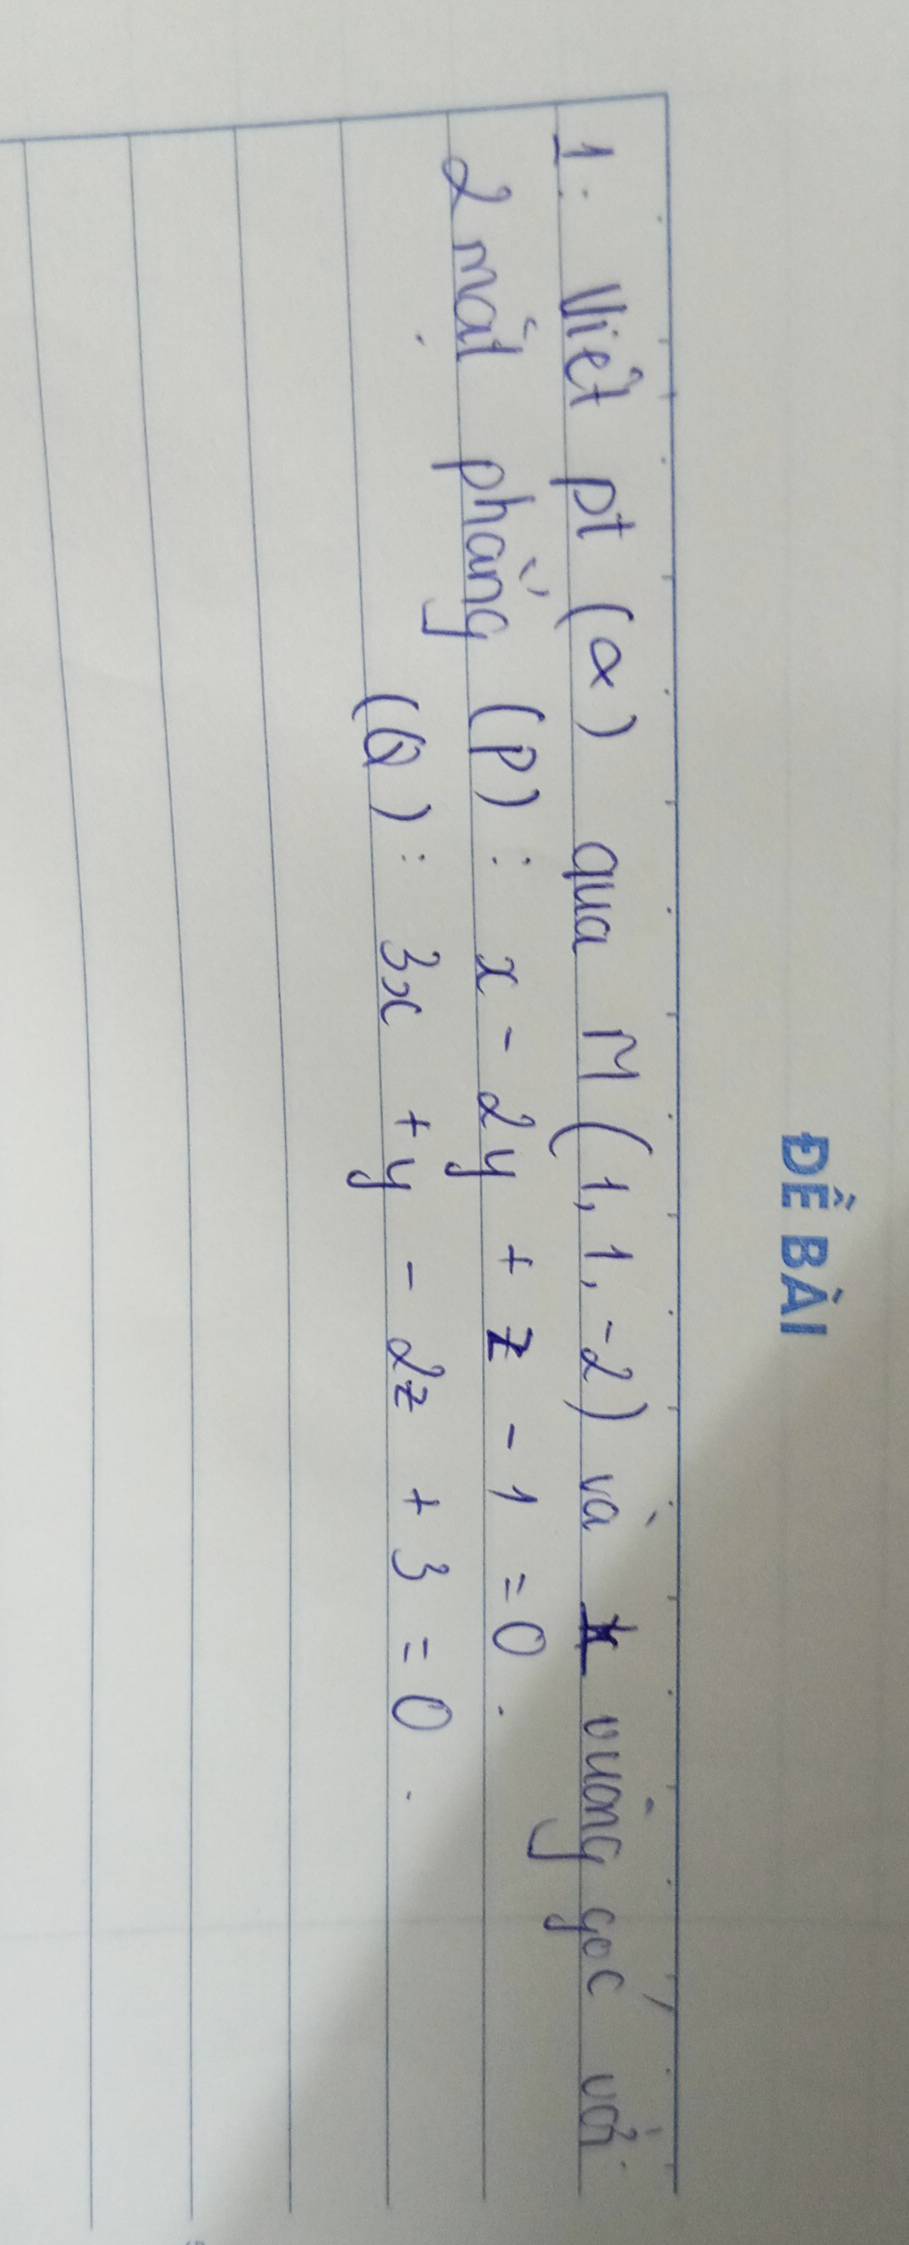 ĐỀ BÀI
1. Viết pt (α) qua M(1, 1, -2) và vuông góc với
2 mặt phẳng (P): x - 2y + z - 1 = 0.
(Q): 3x + y - 2z + 3 = 0.